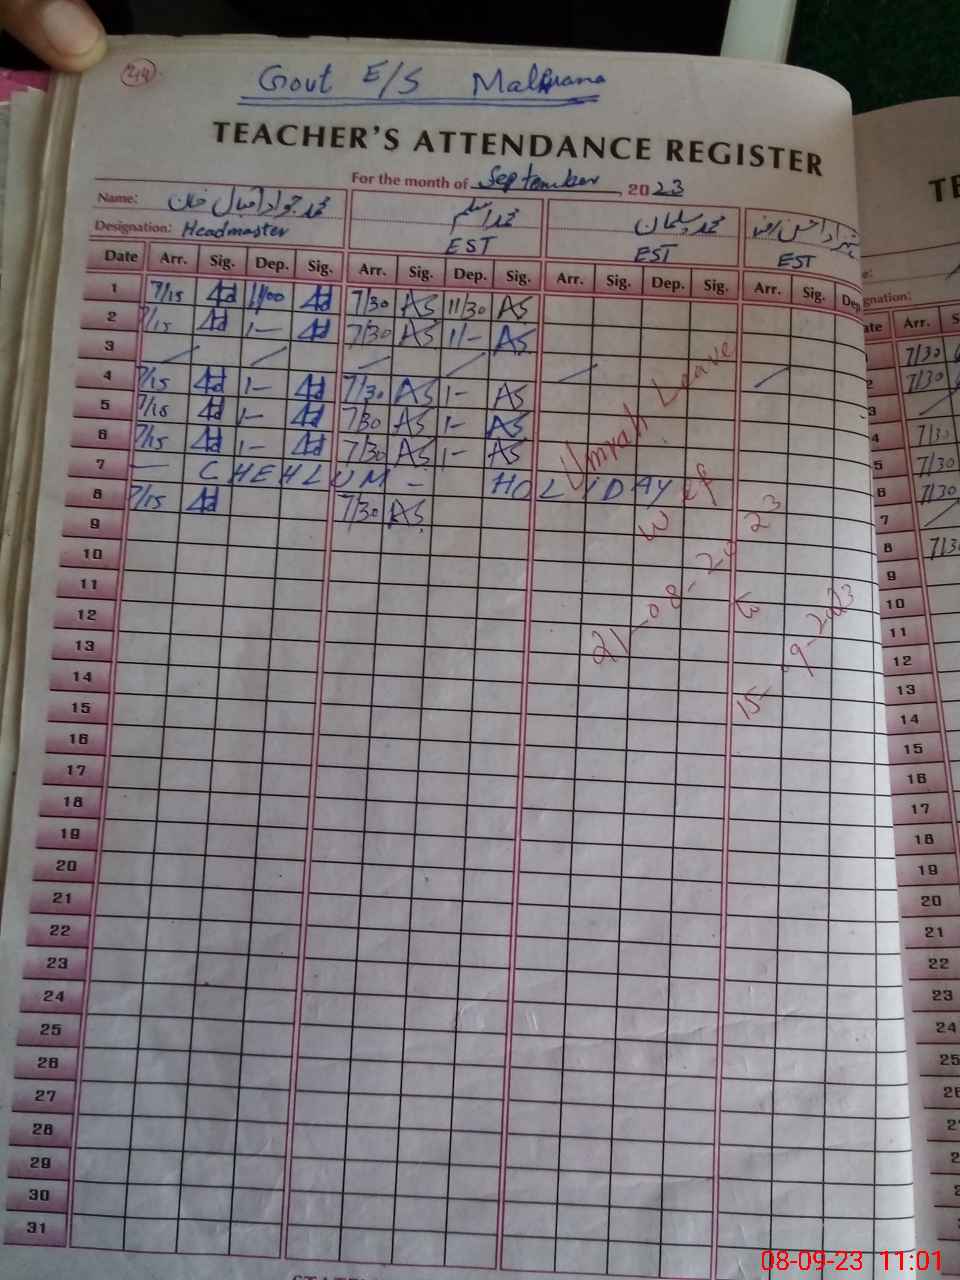 24
Govt E/S Malhrana
TEACHER'S ATTENDANCE REGISTER
For the month of September, 2023
Name: محمد جواد اقبال خان محمد اسلم محمد سلمان
Designation: Headmaster EST EST EST
Date Arr. Sig. Dep. Sig. Arr. Sig. Dep. Sig. Arr. Sig. Dep. Sig. Arr. Sig. Dep
1 7/15 11/00 7/30 AS 11/30 AS
2 7/15 1- 7/30 AS 11/- AS
3
4 7/15 1- 7/30 AS 1- AS
5 7/15 1- 7/30 AS 1- AS
6 7/15 1- 7/30 AS 1- AS
7 — CHEHLUM – HOLIDAY
8 7/15 7/30 AS
9
10
11
12
13
14
15
16
17
18
19
20
21
22
23
24
25
26
27
28
29
30
31
Umrah Leave
w ef
21-08-2023
to
15-9-2023
TE
gnation:
ate Arr. S
7/30
2 7/30
3
4 7/30
5 7/30
6 7/30
7
8 7/30
9
10
11
12
13
14
15
16
17
18
19
20
21
22
23
24
25
26
08-09-23 11:01